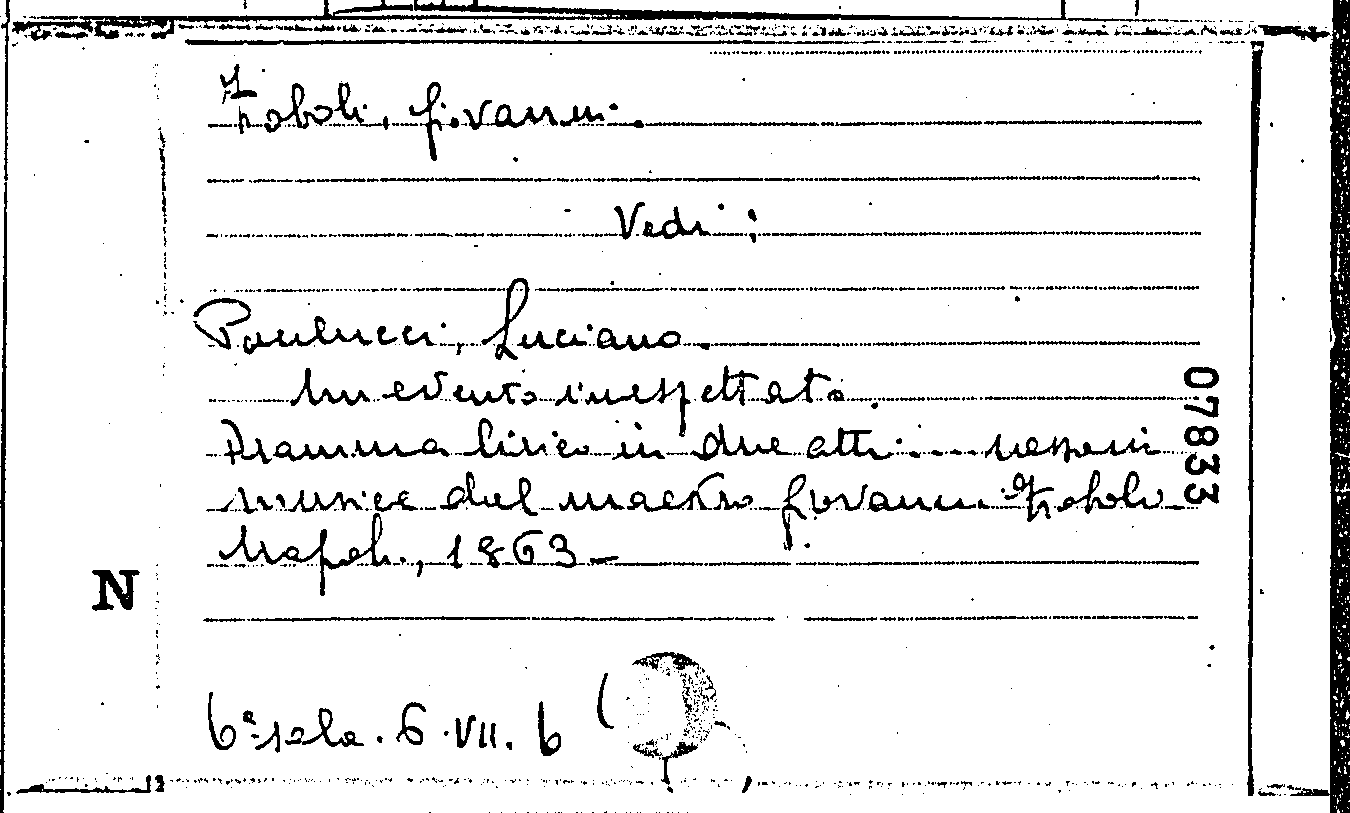 Zoboli, Giovanni.
Vedi:
Paulucci, Luciano.
Un evento inespettato.
Dramma lirico in due atti .... vespeni
musica del maestro Giovanni Zoboli
Napoli, 1863 –
07833
N
6ª sala. 6. VII. 6 (